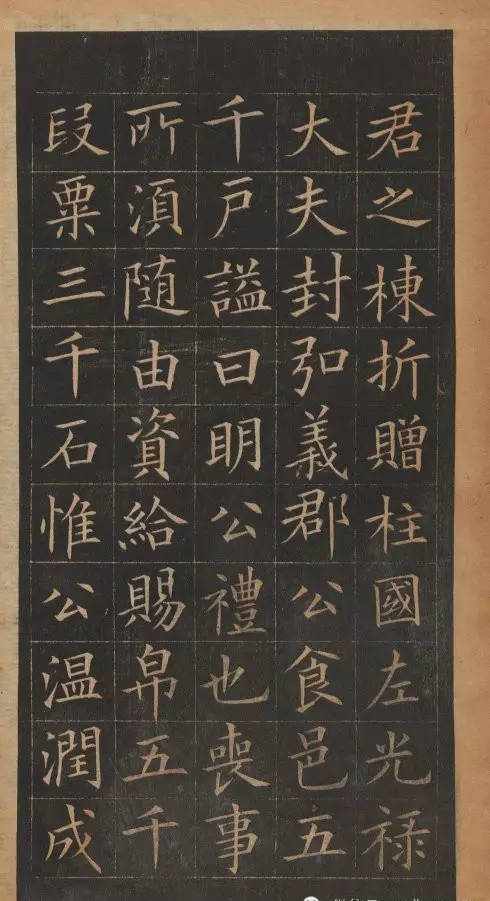 君之棟折贈柱國左光祿
大夫封弘義郡公食邑五
千戶謚曰明公禮也喪事
所湏隨由資給賜帛五千
段粟三千石惟公温潤成